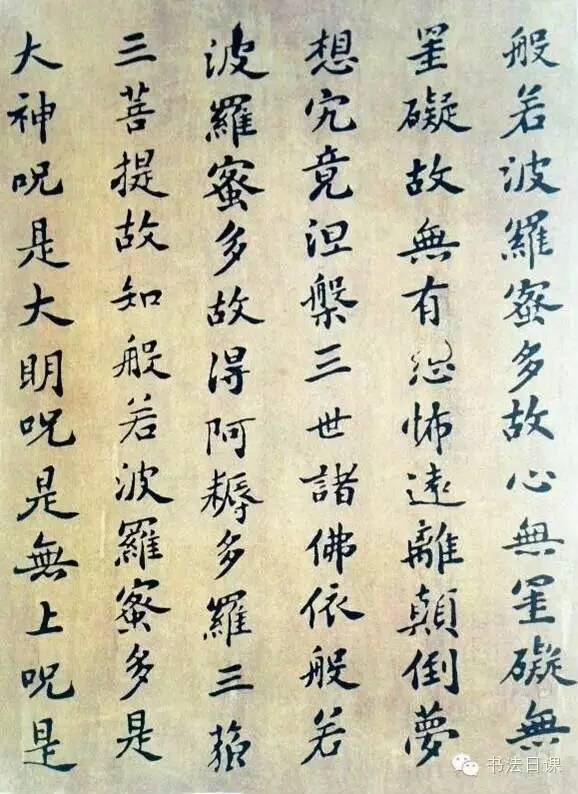 般若波羅蜜多故心無罣礙無
罣礙故無有恐怖遠離顛倒夢
想究竟涅槃三世諸佛依般若
波羅蜜多故得阿耨多羅三藐
三菩提故知般若波羅蜜多是
大神呪是大明呪是無上呪是
书法日课